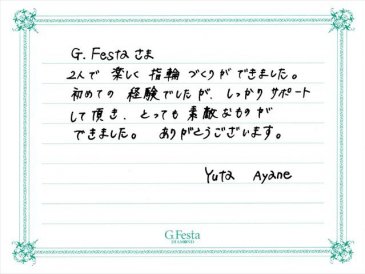 G. Festa さま
2人で 楽しく 指輪 づくりが できました。
初めての 経験でしたが、しっかり サポート
して 頂き、とっても 素敵なものが
できました。 ありがとうございます。
Yuta Ayane
G.Festa
DIAMOND